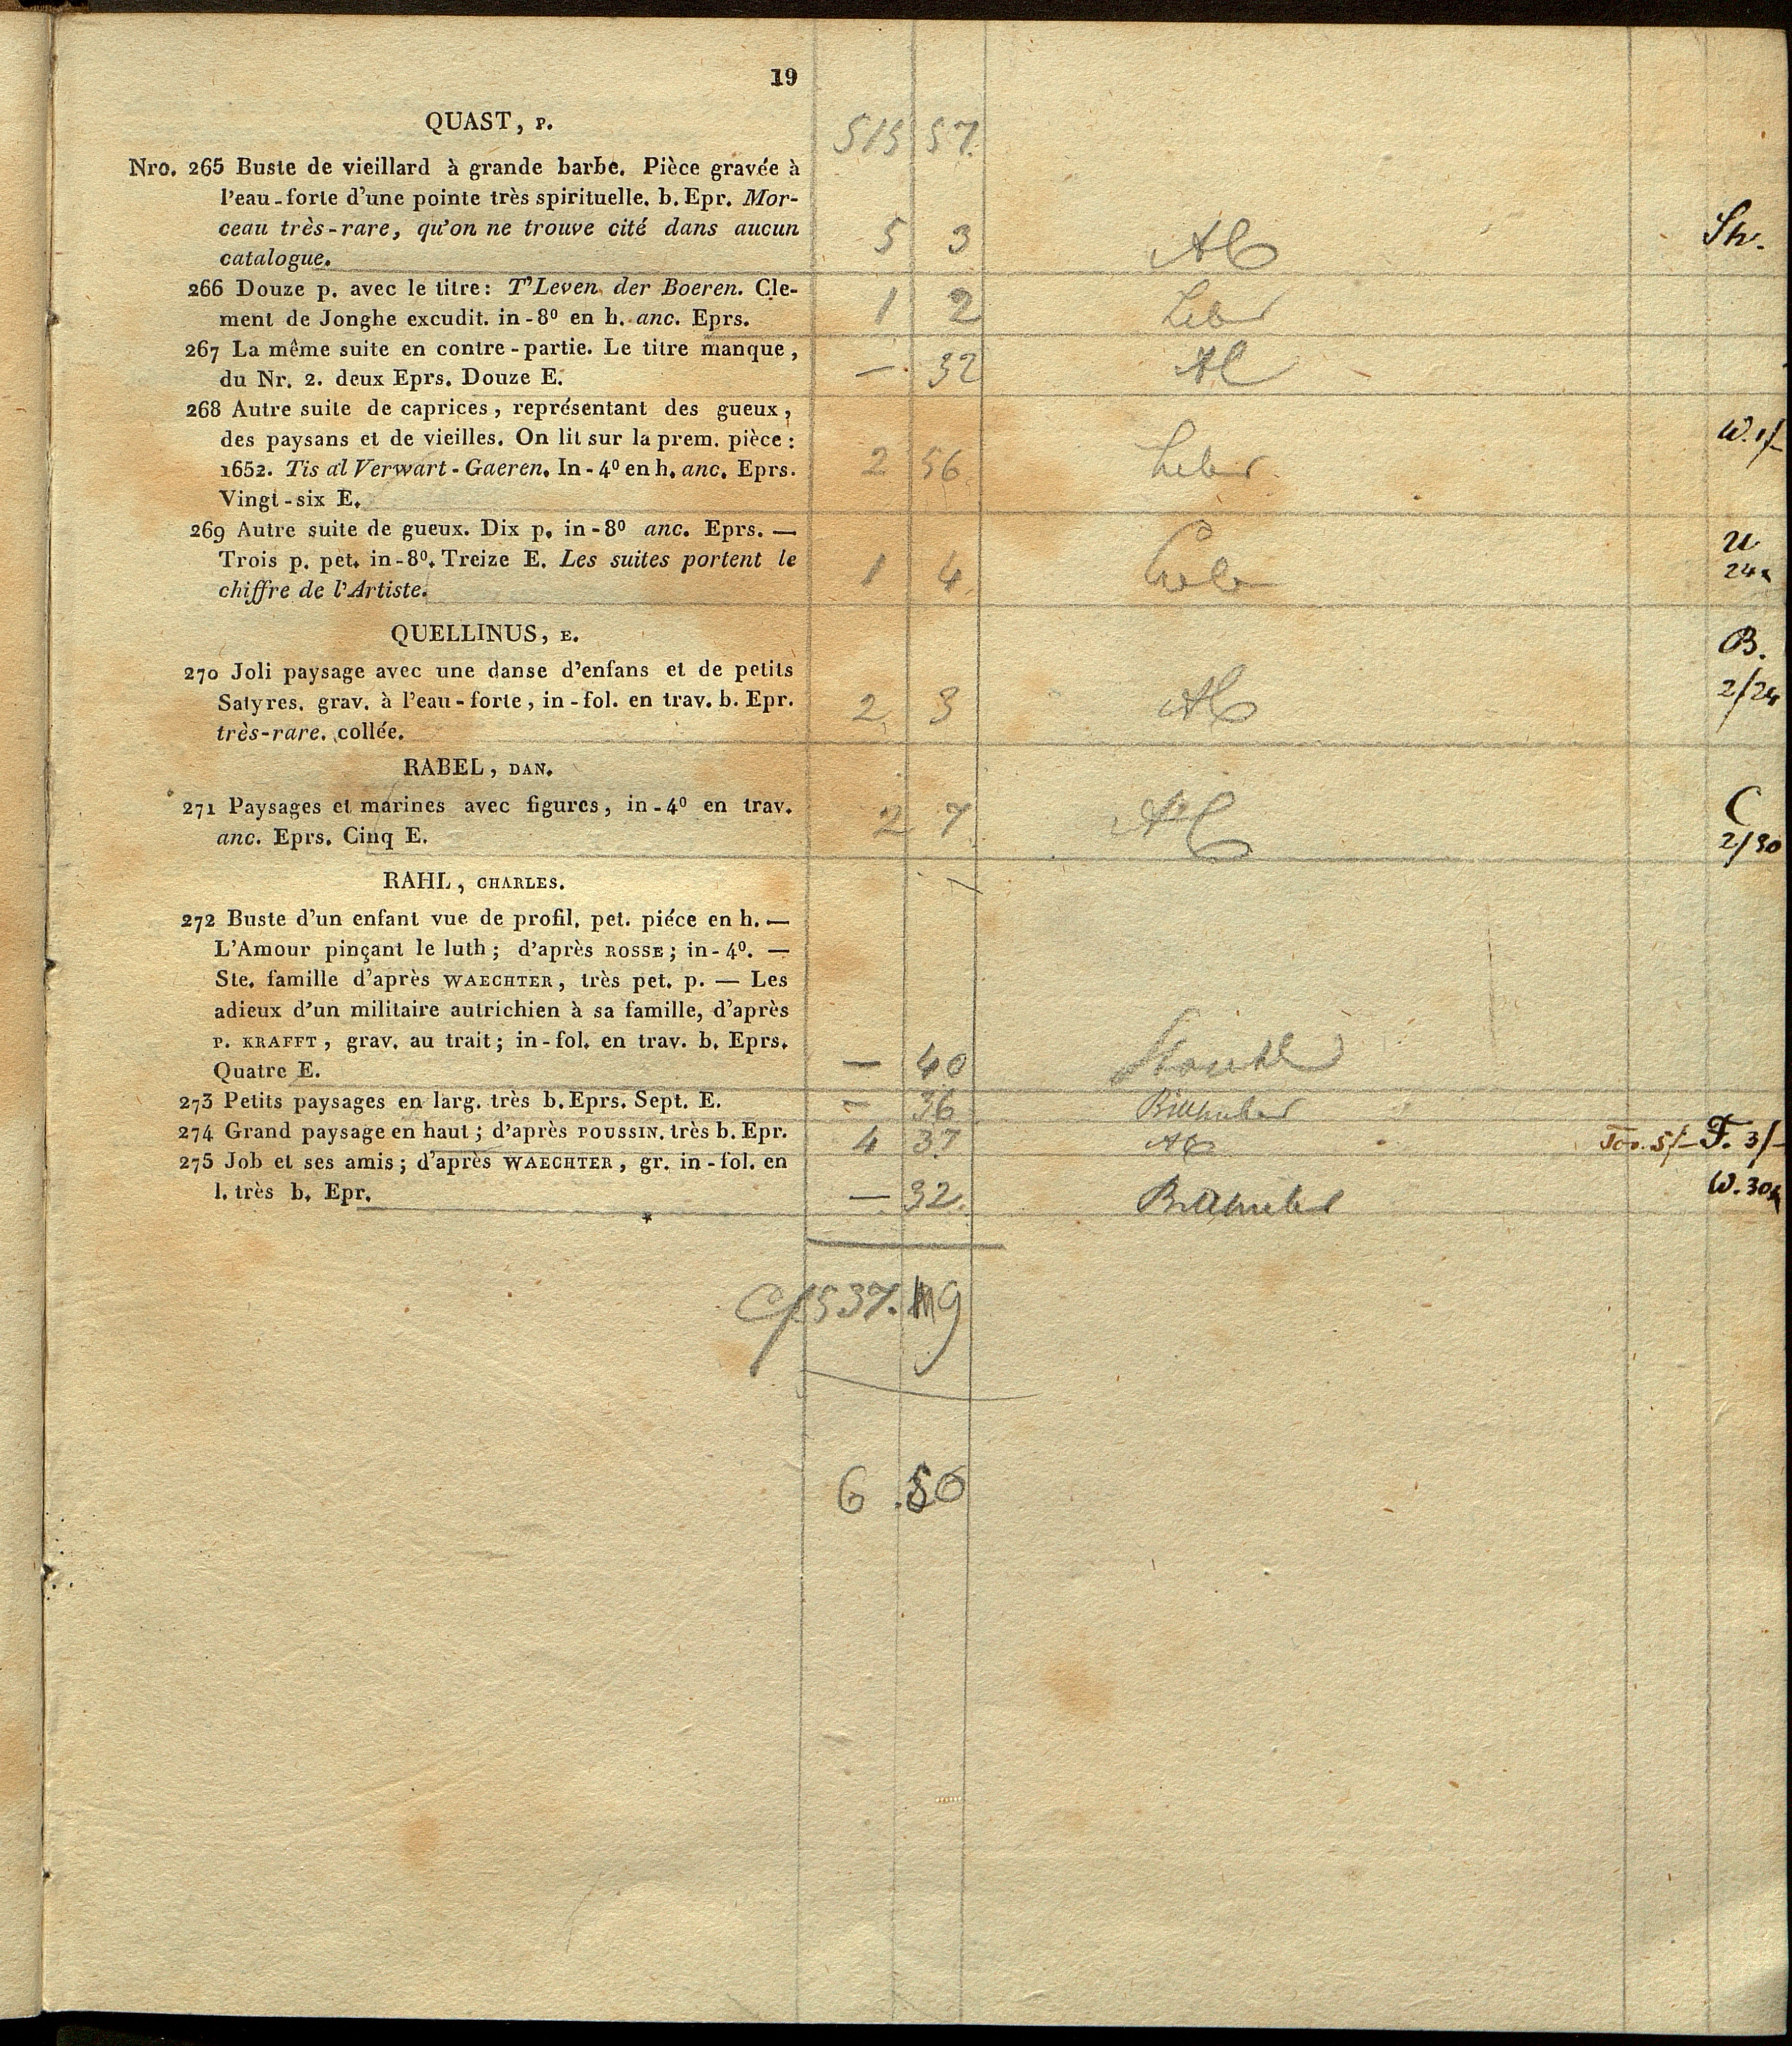 19
QUAST, P.
515 57.
Nro. 265 Buste de vieillard à grande barbe. Pièce gravée à
l'eau-forte d'une pointe très spirituelle. b. Epr. Mor-
ceau très-rare, qu'on ne trouve cité dans aucun
catalogue. 5 3
266 Douze p. avec le titre: T'Leven der Boeren. Cle-
ment de Jonghe excudit. in-8º en h. anc. Eprs. 1 2
267 La même suite en contre-partie. Le titre manque,
du Nr. 2. deux Eprs. Douze E. — 32
268 Autre suite de caprices, représentant des gueux,
des paysans et de vieilles. On lit sur la prem. pièce:
1652. Tis al Verwart-Gaeren. In-4º en h. anc. Eprs. 2 56 W. 1/-
Vingt-six E.
269 Autre suite de gueux. Dix p. in-8º anc. Eprs. —
Trois p. pet. in-8º. Treize E. Les suites portent le 1 4
chiffre de l'Artiste.
QUELLINUS, E.
270 Joli paysage avec une danse d'enfans et de petits B.
Satyres. grav. à l'eau-forte, in-fol. en trav. b. Epr. 2 3 2/24
très-rare. collée.
RABEL, DAN.
271 Paysages et marines avec figures, in-4º en trav. 2 7 C
anc. Eprs. Cinq E. 2/30
RAHL, CHARLES.
272 Buste d'un enfant vue de profil. pet. piéce en h. —
L'Amour pinçant le luth; d'après ROSSE; in-4º. —
Ste. famille d'après WAECHTER, très pet. p. — Les
adieux d'un militaire autrichien à sa famille, d'après
P. KRAFFT, grav. au trait; in-fol. en trav. b. Eprs.
Quatre E. — 40
273 Petits paysages en larg. très b. Eprs. Sept. E. — 36
274 Grand paysage en haut; d'après POUSSIN. très b. Epr. 4 37 F. 3/-
275 Job et ses amis; d'après WAECHTER, gr. in-fol. en
l. très b. Epr. — 32. W. 30
*
537. 9
6 .50